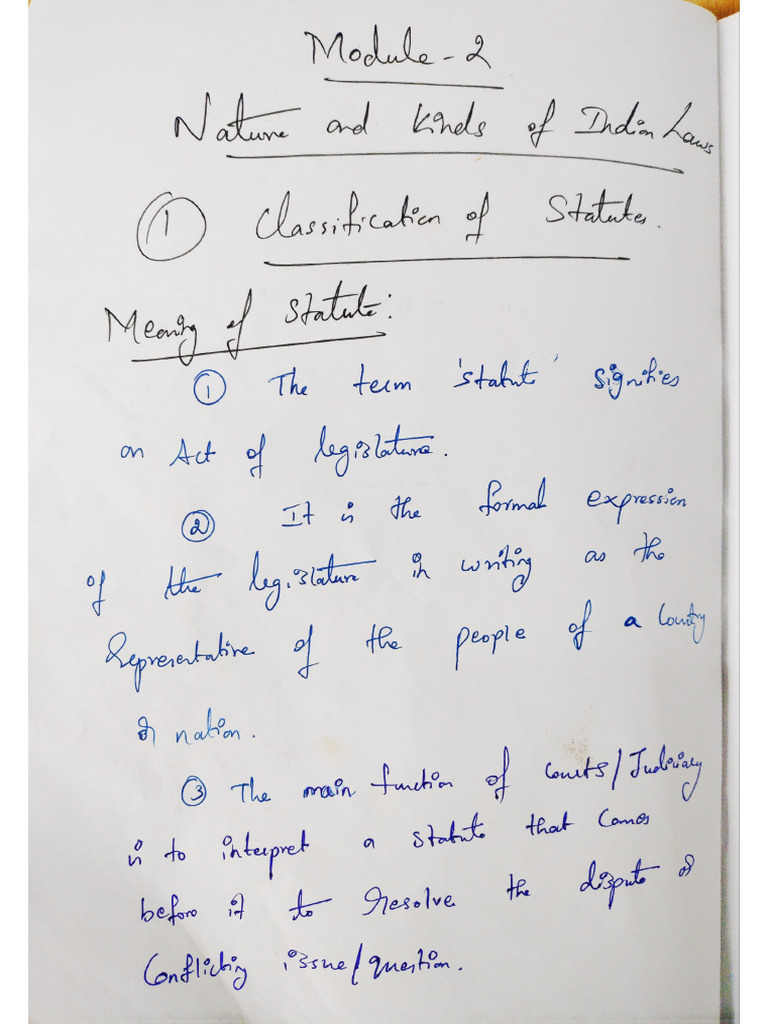 Module-2
Nature and kinds of Indian Laws
① Classification of Statutes.
Meaning of Statute:
① The term 'statute' signifies
an Act of legislature.
② It is the formal expression
of the legislature in writing as the
Representative of the people of a Country
or nation.
③ The main function of Courts/Judiciary
is to interpret a Statute that Comes
before it to resolve the dispute or
Conflicting issue/question.